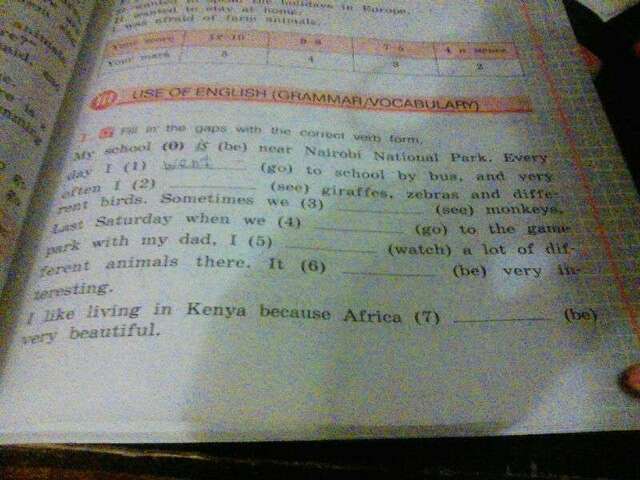 wanted to spend the holidays in Europe.
H wanted to stay at home.
I was afraid of farm animals.
Your score
Your mark 5 4 3 2
III USE OF ENGLISH (GRAMMAR/VOCABULARY)
1. Fill in the gaps with the correct verb form.
My school (0) is (be) near Nairobi National Park. Every
day I (1) went (go) to school by bus, and very
often I (2) ________ (see) giraffes, zebras and diffe-
rent birds. Sometimes we (3) ________ (see) monkeys.
Last Saturday when we (4) ________ (go) to the game
park with my dad, I (5) ________ (watch) a lot of dif-
ferent animals there. It (6) ________ (be) very in-
teresting.
I like living in Kenya because Africa (7) ________ (be)
very beautiful.